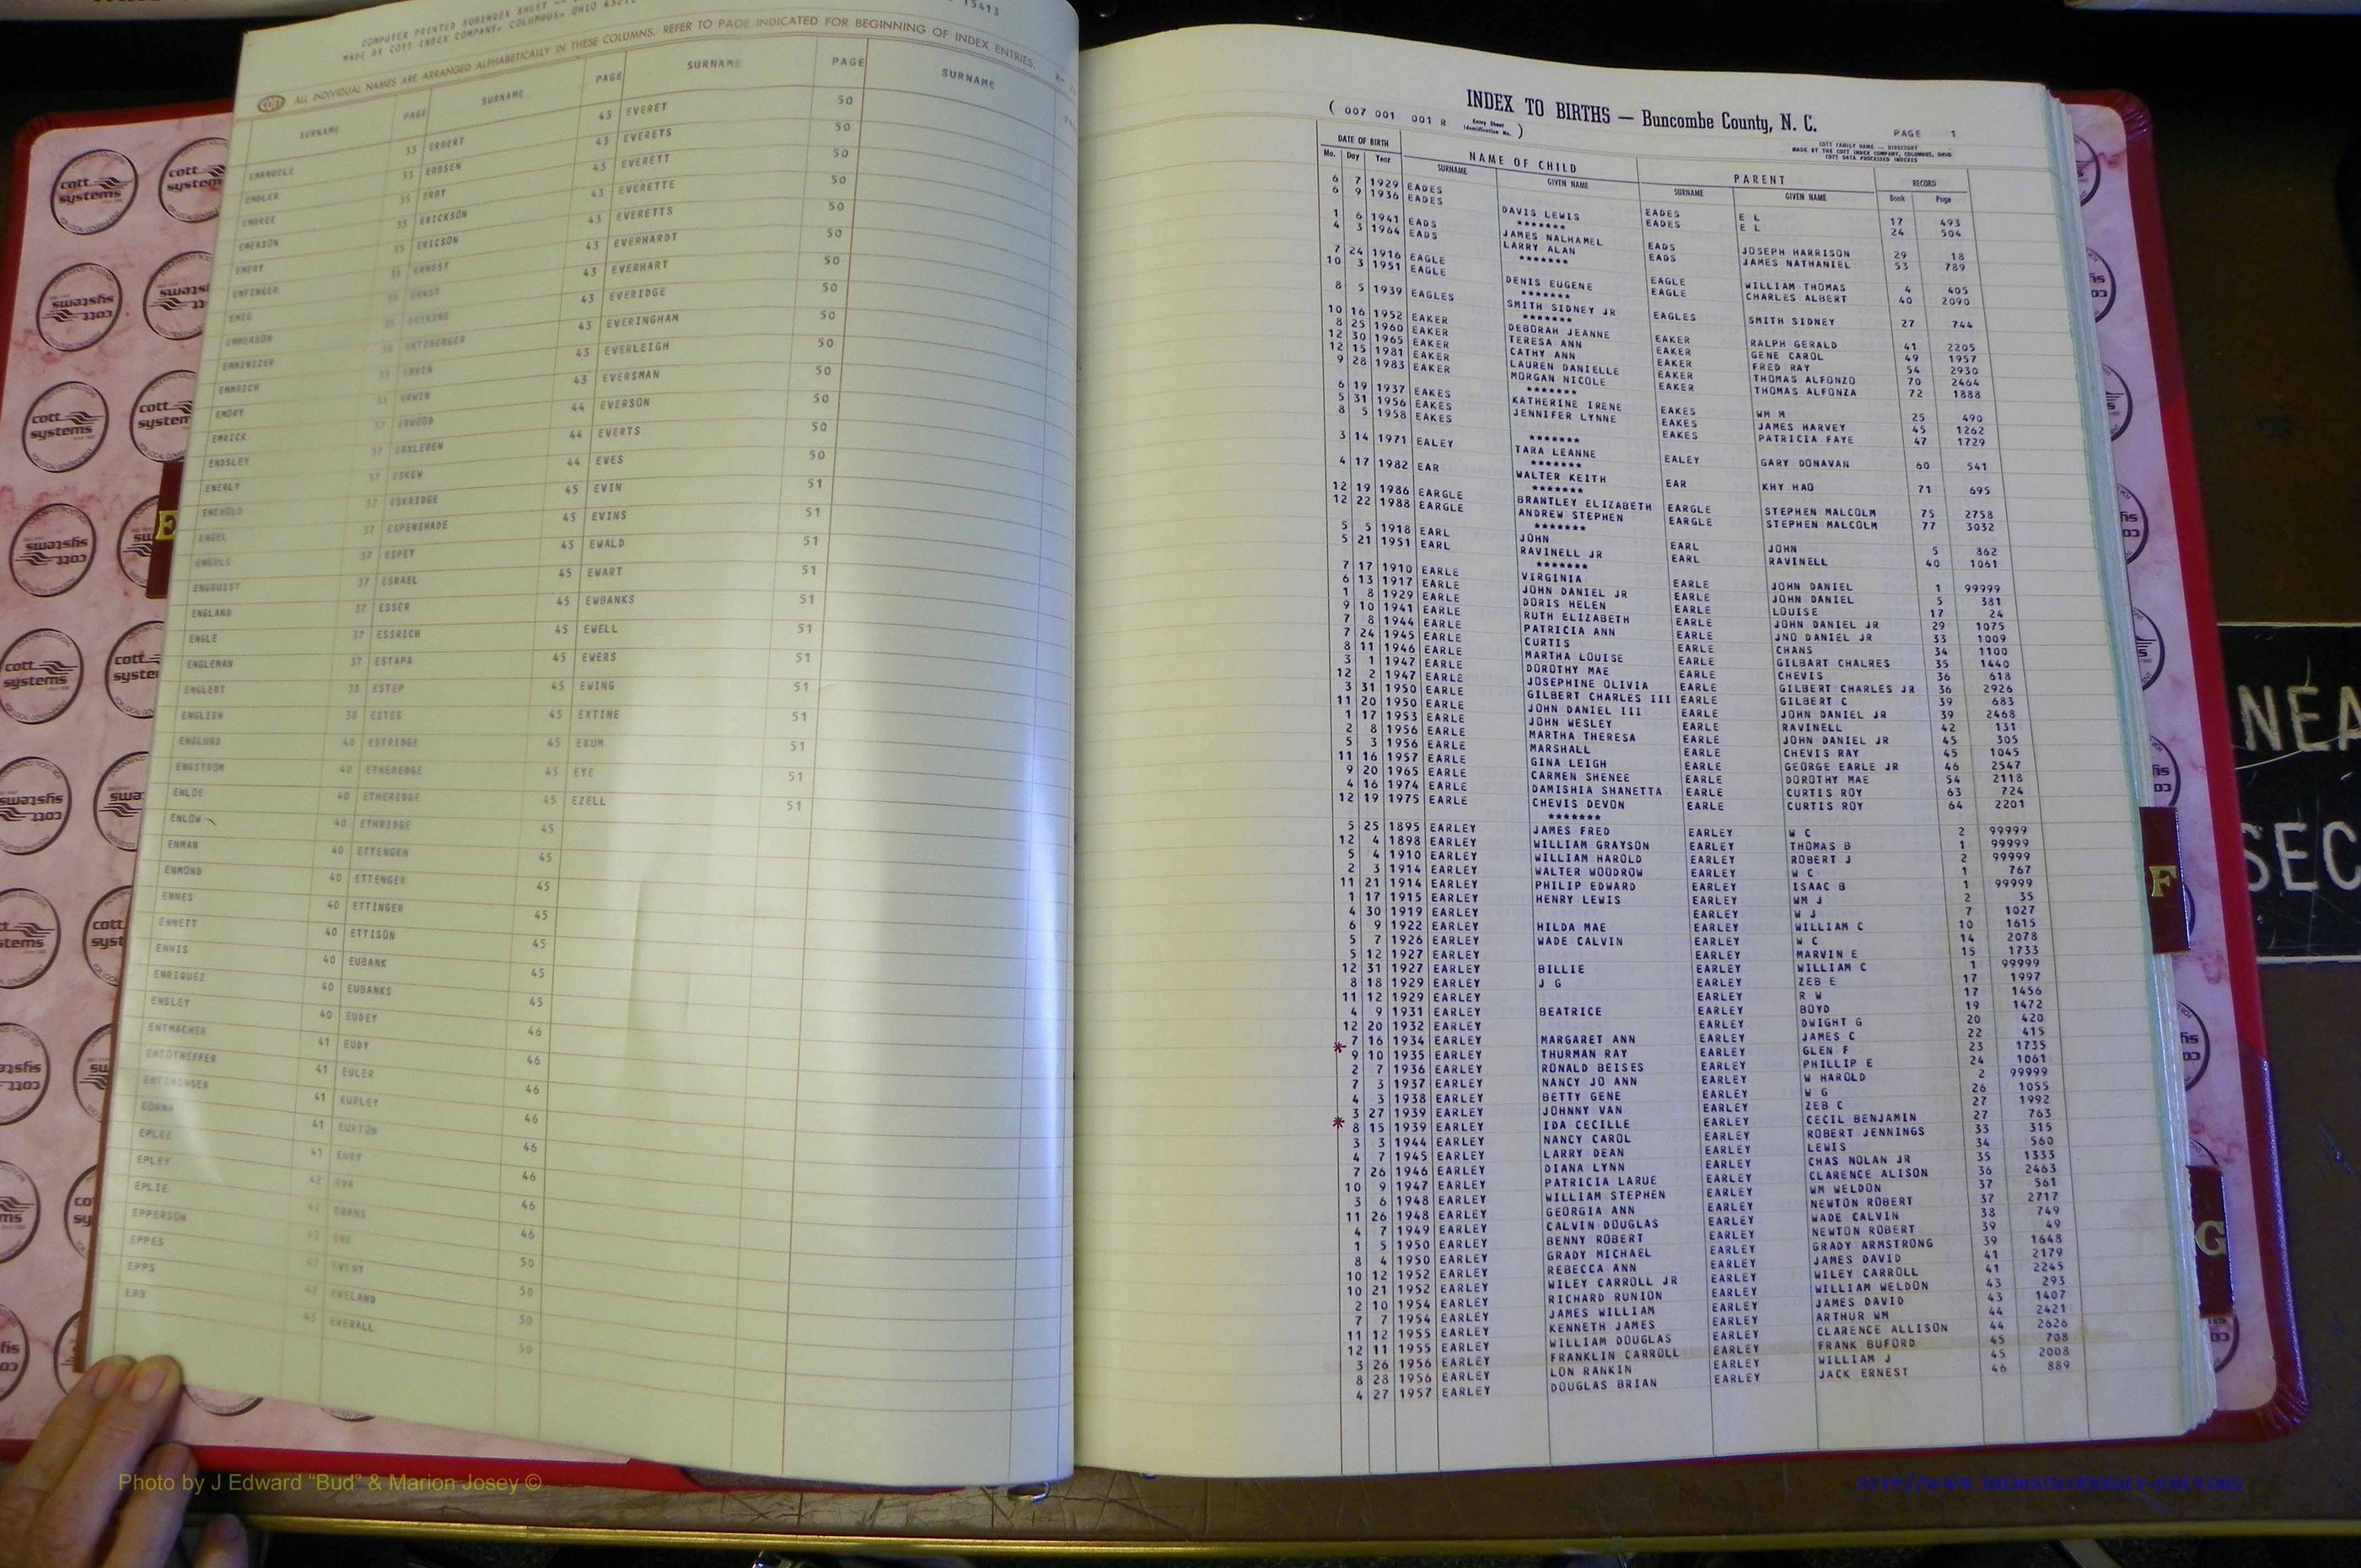 COMPUTER PRINTED SUBINDEX SHEET
MADE BY COTT INDEX COMPANY, COLUMBUS, OHIO
15413
COTT ALL INDIVIDUAL NAMES ARE ARRANGED ALPHABETICALLY IN THESE COLUMNS. REFER TO PAGE INDICATED FOR BEGINNING OF INDEX ENTRIES.
SURNAME PAGE SURNAME PAGE SURNAME PAGE SURNAME
EMANUELE 33 ERBERT 43 EVERET 50
EMBLER 33 ERBSEN 43 EVERETS 50
EMBREE 35 ERBY 43 EVERETT 50
EMERSON 35 ERICKSON 43 EVERETTE 50
EMERY 35 ERICSON 43 EVERETTS 50
EMFINGER ERNEST 43 EVERHARDT 50
EMIG ERNST 43 EVERHART 50
EMMERSON ERSKINE 43 EVERIDGE 50
EMMINIZER 43 EVERINGHAM 50
EMMRICH ERVIN 43 EVERLEIGH 50
EMORY ERWIN 43 EVERSMAN 50
EMRICK 37 ERWOOD 44 EVERSON 50
ENDSLEY 37 ERXLEBEN 44 EVERTS 50
ENERLY 37 ESKEW 44 EVES 50
ENEVOLD 37 ESKRIDGE 45 EVIN 51
ENGEL 37 ESPENSHADE 45 EVINS 51
ENGELS 37 ESPEY 45 EWALD 51
ENGGUIST 37 ESRAEL 45 EWART 51
ENGLAND 37 ESSER 45 EWBANKS 51
ENGLE 37 ESSRICH 45 EWELL 51
ENGLEMAN 37 ESTAPA 45 EWERS 51
ENGLERT 38 ESTEP 45 EWING 51
ENGLISH 38 ESTES 45 EXTINE 51
ENGLUND 40 ESTRIDGE 45 EXUM 51
ENGSTROM 40 ETHEREDGE 45 EYE 51
ENLOE 40 ETHERIDGE 45 EZELL 51
ENLOW 40 ETHRIDGE 45
ENMAN 40 ETTENGEN 45
ENMOND 40 ETTENGER 45
ENNES 40 ETTINGER 45
ENNETT 40 ETTISON 45
ENNIS 40 EUBANK 45
ENRIQUEZ 40 EUBANKS 45
ENSLEY 40 EUDEY 46
ENTMACHER 41 EUDY 46
ENTOTHEFFER 41 EULER 46
ENTZMINGER 41 EURLEY 46
41 EURTON 46
EPLEE 41 EURY 46
EPLEY 42 EVA 46
EPLIE 42 EVANS 46
EPPERSON EVE 50
EPPES EVEDY 50
EPPS EVELAND 50
ERB 43 EVERALL 50
INDEX TO BIRTHS — Buncombe County, N. C.
( 007 001 001 R Entry Sheet Identification No. ) PAGE 1
COTT FAMILY NAME — DIRECTORY
MADE BY THE COTT INDEX COMPANY, COLUMBUS, OHIO
COTT DATA PROCESSED INDEXES
DATE OF BIRTH NAME OF CHILD PARENT RECORD
Mo. Day Year SURNAME GIVEN NAME SURNAME GIVEN NAME Book Page
6 7 1929 EADES DAVIS LEWIS EADES E L 17 493
6 9 1936 EADES EADES E L 24 504
*******
1 6 1941 EADS JAMES NALHAMEL EADS JOSEPH HARRISON 29 18
4 3 1964 EADS LARRY ALAN EADS JAMES NATHANIEL 53 789
*******
7 24 1916 EAGLE EAGLE WILLIAM THOMAS 4 405
10 3 1951 EAGLE DENIS EUGENE EAGLE CHARLES ALBERT 40 2090
*******
8 5 1939 EAGLES SMITH SIDNEY JR EAGLES SMITH SIDNEY 27 744
*******
10 16 1952 EAKER DEBORAH JEANNE EAKER RALPH GERALD 41 2205
8 25 1960 EAKER TERESA ANN EAKER GENE CAROL 49 1957
12 30 1965 EAKER CATHY ANN EAKER FRED RAY 54 2930
12 15 1981 EAKER LAUREN DANIELLE EAKER THOMAS ALFONZO 70 2464
9 28 1983 EAKER MORGAN NICOLE EAKER THOMAS ALFONZA 72 1888
*******
6 19 1937 EAKES KATHERINE IRENE EAKES WM M 25 490
5 31 1956 EAKES JENNIFER LYNNE EAKES JAMES HARVEY 45 1262
8 5 1958 EAKES EAKES PATRICIA FAYE 47 1729
*******
3 14 1971 EALEY TARA LEANNE EALEY GARY DONAVAN 60 541
*******
4 17 1982 EAR WALTER KEITH EAR KHY HAO 71 695
*******
12 19 1986 EARGLE BRANTLEY ELIZABETH EARGLE STEPHEN MALCOLM 75 2758
12 22 1988 EARGLE ANDREW STEPHEN EARGLE STEPHEN MALCOLM 77 3032
*******
5 5 1918 EARL JOHN EARL JOHN 5 862
5 21 1951 EARL RAVINELL JR EARL RAVINELL 40 1061
*******
7 17 1910 EARLE VIRGINIA EARLE JOHN DANIEL 1 99999
6 13 1917 EARLE JOHN DANIEL JR EARLE JOHN DANIEL 5 381
1 8 1929 EARLE DORIS HELEN EARLE LOUISE 17 24
9 10 1941 EARLE RUTH ELIZABETH EARLE JOHN DANIEL JR 29 1075
7 8 1944 EARLE PATRICIA ANN EARLE JNO DANIEL JR 33 1009
7 24 1945 EARLE CURTIS EARLE CHANS 34 1100
8 11 1946 EARLE MARTHA LOUISE EARLE GILBART CHALRES 35 1440
3 1 1947 EARLE DOROTHY MAE EARLE CHEVIS 36 618
12 2 1947 EARLE JOSEPHINE OLIVIA EARLE GILBERT CHARLES JR 36 2926
3 31 1950 EARLE GILBERT CHARLES III EARLE GILBERT C 39 683
11 20 1950 EARLE JOHN DANIEL III EARLE JOHN DANIEL JR 39 2468
1 17 1953 EARLE JOHN WESLEY EARLE RAVINELL 42 131
2 8 1956 EARLE MARTHA THERESA EARLE JOHN DANIEL JR 45 305
5 3 1956 EARLE MARSHALL EARLE CHEVIS RAY 45 1045
11 16 1957 EARLE GINA LEIGH EARLE GEORGE EARLE JR 46 2547
9 20 1965 EARLE CARMEN SHENEE EARLE DOROTHY MAE 54 2118
4 16 1974 EARLE DAMISHIA SHANETTA EARLE CURTIS ROY 63 724
12 19 1975 EARLE CHEVIS DEVON EARLE CURTIS ROY 64 2201
*******
5 25 1895 EARLEY JAMES FRED EARLEY W C 2 99999
12 4 1898 EARLEY WILLIAM GRAYSON EARLEY THOMAS B 1 99999
5 4 1910 EARLEY WILLIAM HAROLD EARLEY ROBERT J 2 99999
2 3 1914 EARLEY WALTER WOODROW EARLEY W C 1 767
11 21 1914 EARLEY PHILIP EDWARD EARLEY ISAAC B 1 99999
1 17 1915 EARLEY HENRY LEWIS EARLEY WM J 2 35
4 30 1919 EARLEY EARLEY W J 7 1027
6 9 1922 EARLEY HILDA MAE EARLEY WILLIAM C 10 1615
5 7 1926 EARLEY WADE CALVIN EARLEY W C 14 2078
5 12 1927 EARLEY EARLEY MARVIN E 15 1733
12 31 1927 EARLEY BILLIE EARLEY WILLIAM C 1 99999
8 18 1929 EARLEY J G EARLEY ZEB E 17 1997
11 12 1929 EARLEY EARLEY R W 17 1456
4 9 1931 EARLEY BEATRICE EARLEY BOYD 19 1472
12 20 1932 EARLEY EARLEY DWIGHT G 20 420
7 16 1934 EARLEY MARGARET ANN EARLEY JAMES C 22 415
* 9 10 1935 EARLEY THURMAN RAY EARLEY GLEN F 23 1735
2 7 1936 EARLEY RONALD BEISES EARLEY PHILLIP E 24 1061
7 3 1937 EARLEY NANCY JO ANN EARLEY W HAROLD 2 99999
4 3 1938 EARLEY BETTY GENE EARLEY W G 26 1055
3 27 1939 EARLEY JOHNNY VAN EARLEY ZEB C 27 1992
* 8 15 1939 EARLEY IDA CECILLE EARLEY CECIL BENJAMIN 27 763
3 3 1944 EARLEY NANCY CAROL EARLEY ROBERT JENNINGS 33 315
4 7 1945 EARLEY LARRY DEAN EARLEY LEWIS 34 560
7 26 1946 EARLEY DIANA LYNN EARLEY CHAS NOLAN JR 35 1333
10 9 1947 EARLEY PATRICIA LARUE EARLEY CLARENCE ALISON 36 2463
3 6 1948 EARLEY WILLIAM STEPHEN EARLEY WM WELDON 37 561
11 26 1948 EARLEY GEORGIA ANN EARLEY NEWTON ROBERT 37 2717
4 7 1949 EARLEY CALVIN DOUGLAS EARLEY WADE CALVIN 38 749
1 5 1950 EARLEY BENNY ROBERT EARLEY NEWTON ROBERT 39 49
8 4 1950 EARLEY GRADY MICHAEL EARLEY GRADY ARMSTRONG 39 1648
10 12 1952 EARLEY REBECCA ANN EARLEY JAMES DAVID 41 2179
10 21 1952 EARLEY WILEY CARROLL JR EARLEY WILEY CARROLL 41 2245
2 10 1954 EARLEY RICHARD RUNION EARLEY WILLIAM WELDON 43 293
7 7 1954 EARLEY JAMES WILLIAM EARLEY JAMES DAVID 43 1407
11 12 1955 EARLEY KENNETH JAMES EARLEY ARTHUR WM 44 2421
12 11 1955 EARLEY WILLIAM DOUGLAS EARLEY CLARENCE ALLISON 44 2626
3 26 1956 EARLEY FRANKLIN CARROLL EARLEY FRANK BUFORD 45 708
8 28 1956 EARLEY LON RANKIN EARLEY WILLIAM J 45 2008
4 27 1957 EARLEY DOUGLAS BRIAN EARLEY JACK ERNEST 46 889
E
F
G
cott systems
NEA
SEC
Photo by J Edward “Bud” & Marion Josey ©